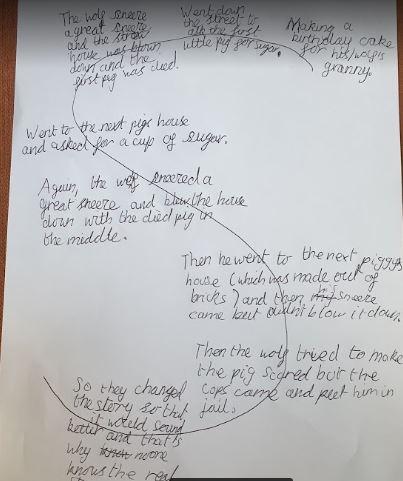 Making a
birthday cake
for his/wolf's
granny.
Went down
the street to
ask the first
little pig for sugar.
The wolf sneeze
a great sneeze
and the straw
house was blown
down and the
first pig was died.
Went to the next pigs house
and asked for a cup of sugar.
Again, the wolf sneezed a
great sneeze and blew the house
down with the died pig in
the middle.
Then he went to the next piggys
house (which was made out of
bricks) and then his sneeze
came but didn't blow it down.
Then the wolf tried to make
the pig scared but the
cops came and put him in
jail.
So they changed
the story so that
it would sound
better and that's
why noone
knows the real